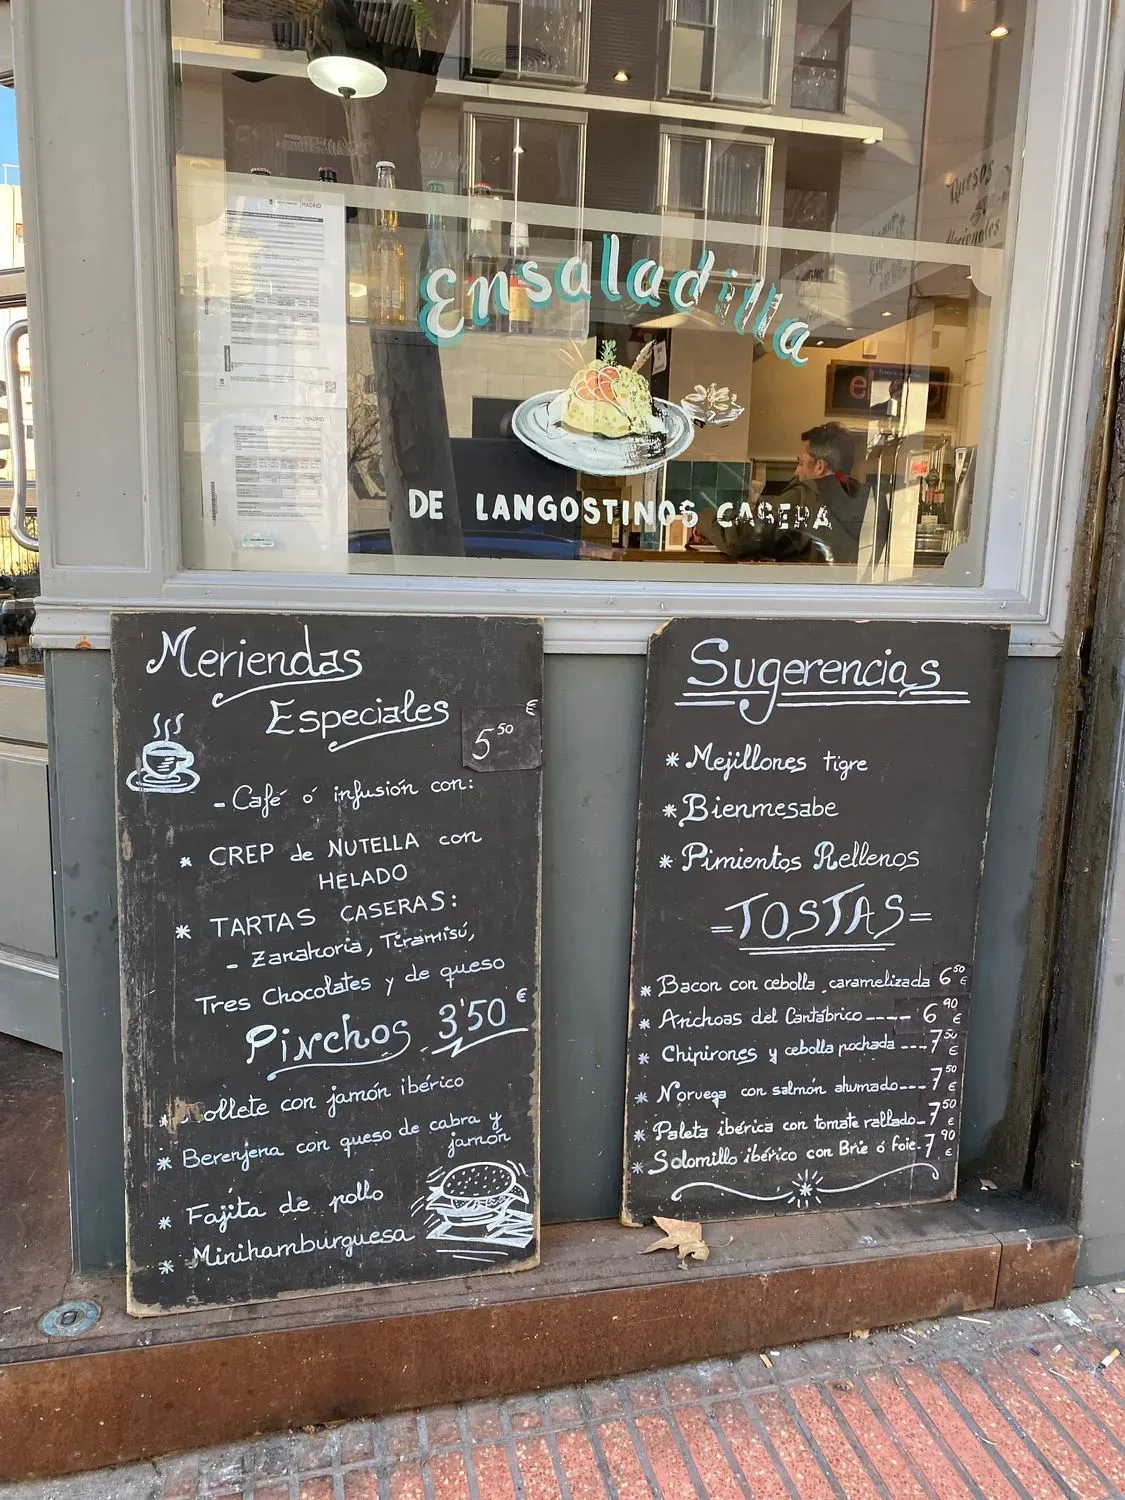 MADRID
Quesos
Ensaladilla
MADRID
DE LANGOSTINOS CASERA
Meriendas
Especiales
5⁵⁰ €
- Café ó infusión con:
* CREP de NUTELLA con
HELADO
* TARTAS CASERAS:
- Zanahoria, Tiramisú,
Tres Chocolates y de queso
Pinchos 3'50 €
* ollete con jamón ibérico
* Berenjena con queso de cabra y
jamón
* Fajita de pollo
* Minihamburguesa
Sugerencias
* Mejillones tigre
* Bienmesabe
* Pimientos Rellenos
=TOSTAS=
* Bacon con cebolla caramelizada 6⁵⁰ €
* Anchoas del Cantábrico---- 6⁹⁰ €
* Chipirones y cebolla pochada ---7⁵⁰ €
* Noruega con salmón ahumado---7⁵⁰ €
* Paleta ibérica con tomate rallado-7⁵⁰ €
* Solomillo ibérico con Brie ó foie-7⁹⁰ €